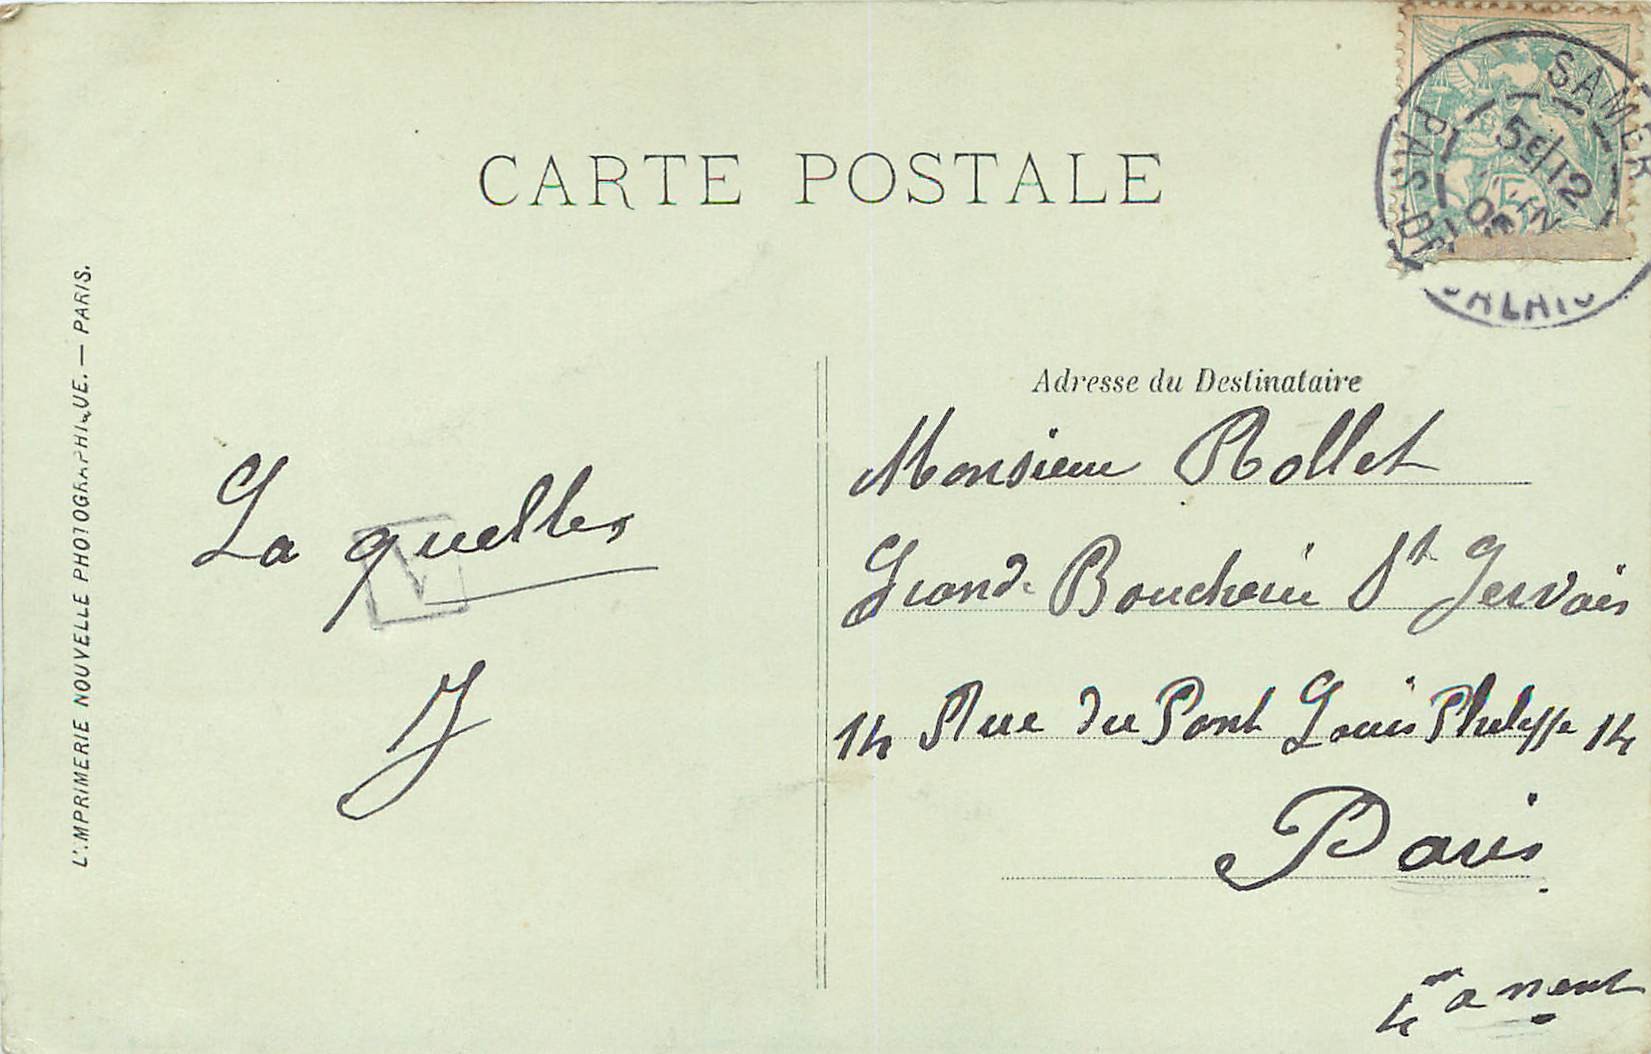 CARTE POSTALE
SAMER
PAS-DE-CALAIS
5E/12
L'IMPRIMERIE NOUVELLE PHOTOGRAPHIQUE. — PARIS.
La quelles
J
Adresse du Destinataire
Monsieur Rollet
Grande Boucherie St Gervais
14 Rue du Pont Louis Philippe 14
Paris
4ème